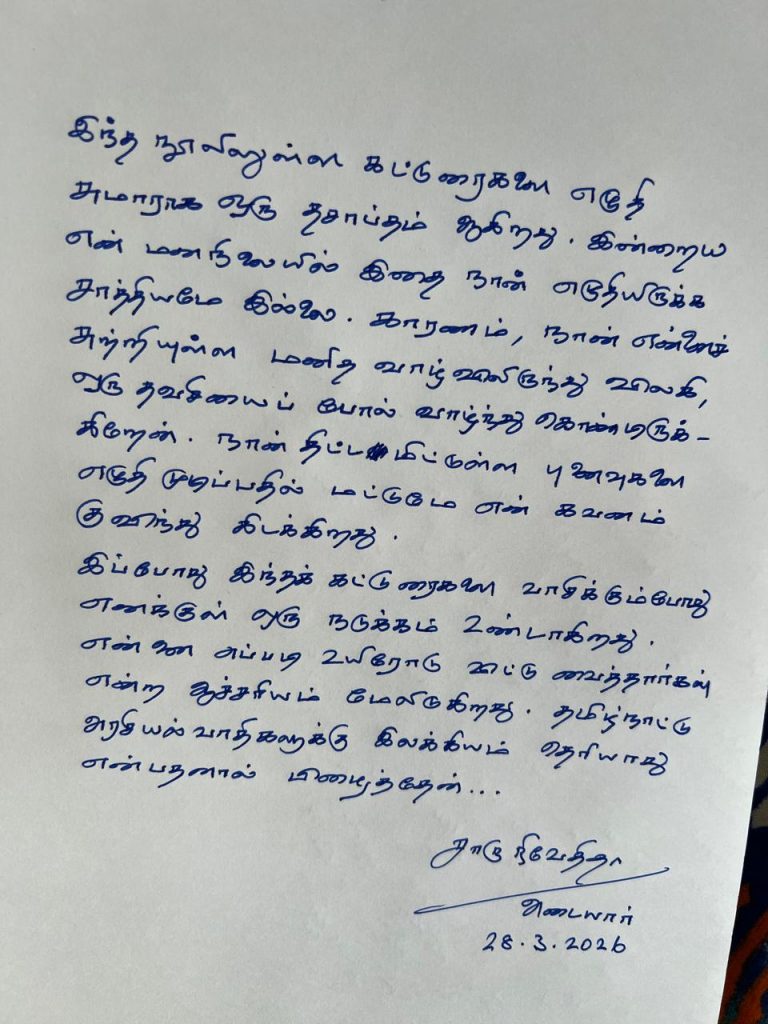 இந்த நூலிலுள்ள கட்டுரைகளை எழுதி
சுமாராக ஒரு தசாப்தம் ஆகிறது. இன்றைய
என் மனநிலையில் இதை நான் எழுதியிருக்க
சாத்தியமே இல்லை. காரணம், நான் என்னைச்
சுற்றியுள்ள மனித வாழ்விலிருந்து விலகி,
ஒரு தவசியைப் போல் வாழ்ந்து கொண்டிருக்-
கிறேன். நான் திட்டமிட்டுள்ள புனைவுகளை
எழுதி முடிப்பதில் மட்டுமே என் கவனம்
குவிந்து கிடக்கிறது.
இப்போது இந்தக் கட்டுரைகளை வாசிக்கும்போது
எனக்குள் ஒரு நடுக்கம் உண்டாகிறது.
என்னை எப்படி உயிரோடு விட்டு வைத்தார்கள்
என்ற ஆச்சரியம் மேலிடுகிறது. தமிழ்நாட்டு
அரசியல்வாதிகளுக்கு இலக்கியம் தெரியாது
என்பதனால் பிழைத்தேன்...
சாரு நிவேதிதா
அடையார்
28.3.2026